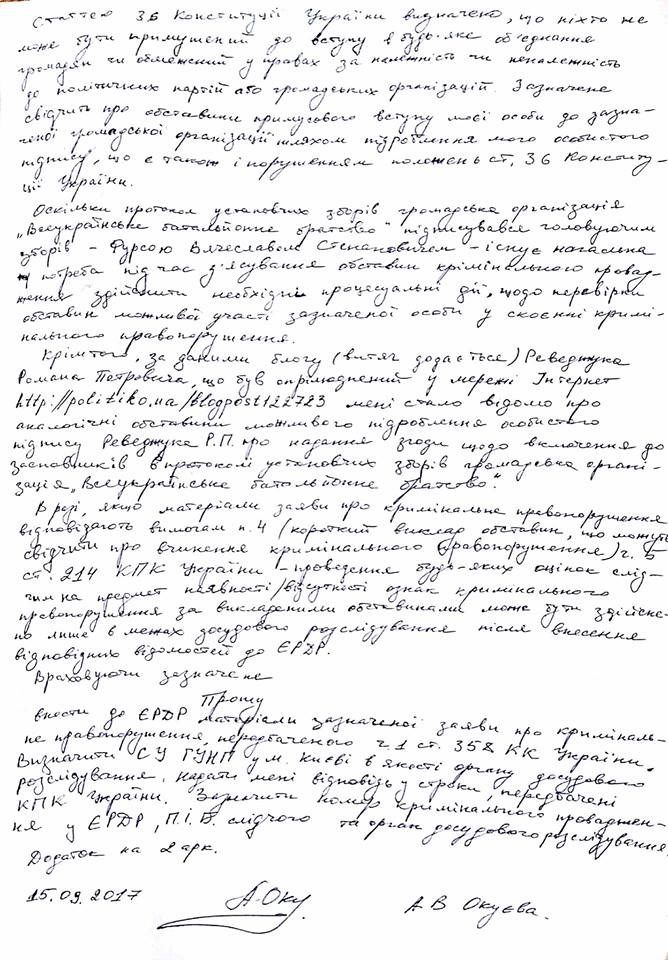 Статтею 36 Конституції України визначено, що ніхто не
може бути примушений до вступу в будь-яке об'єднання
громадян чи обмежений у правах за належність чи неналежність
до політичних партій або громадських організацій. Зазначене
свідчить про обставини примусового вступу моєї особи до зазна-
ченої громадської організації шляхом підроблення мого особистого
підпису, що є також і порушенням положень ст. 36 Конститу-
ції України.
Оскільки протокол установчих зборів громадська організація
„Всеукраїнське батальйонне братство" підписувався головуючим
зборів - Фурсою Вячеславом Степановичем - існує нагальна
потреба під час з'ясування обставин кримінального провад-
ження здійснити необхідні процесуальні дії, щодо перевірки
обставин можливої участі зазначеної особи у скоєнні кримі-
нального правопорушення.
Крім того, за даними блогу (витяг додається) Реведжука
Романа Петровича, що був оприлюднений у мережі Інтернет
http://politiko.ua/blogpost122723 мені стало відомо про
аналогічні обставини можливого підроблення особистого
підпису Реведжука Р.П. про надання згоди щодо включення до
засновників в протоколі установчих зборів громадська органі-
зація „Всеукраїнське батальйонне братство".
В разі, якщо матеріали заяви про кримінальне правопорушення
відповідають вимогам п. 4 (короткий виклад обставин, що можуть
свідчити про вчинення кримінального правопорушення) ч. 5
ст. 214 КПК України - проведення будь-яких оцінок слід-
чим на предмет наявності/відсутності ознак кримінального
правопорушення за викладеними обставинами може бути здійсне-
но лише в межах досудового розслідування після внесення
відповідних відомостей до ЄРДР.
Враховуючи зазначене
Прошу
внести до ЄРДР матеріали зазначеної заяви про криміналь-
не правопорушення, передбаченого ч. 1 ст. 358 КК України.
Визначити СУ ГУНП у м. Києві в якості органу досудового
розслідування, надати мені відповідь у строки, передбачені
КПК України. Зазначити номер кримінального проваджен-
ня у ЄРДР, П.І.Б. слідчого та орган досудового розслідування.
Додаток на 2 арк.
15.09.2017 А.Оку А В Окуєва.